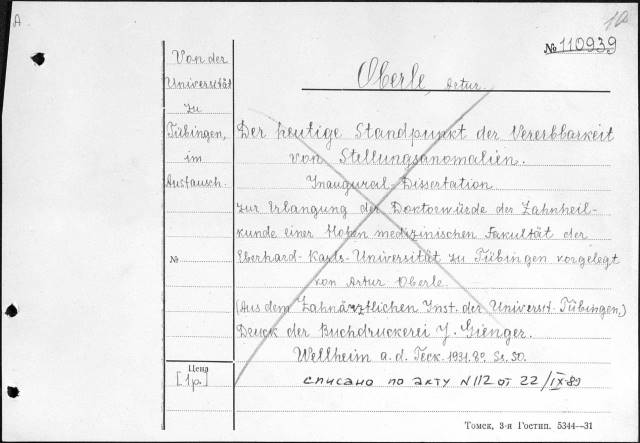 A
10
№ 110939
Von der
Universität
zu
Tübingen,
im
Austausch.
№
Цена
[1р.]
Oberle, Artur.
Der heutige Standpunkt der Vererbbarkeit
von Stellungsanomalien.
Inaugural-Dissertation
zur Erlangung der Doktorwürde der Zahnheil-
kunde einer Hohen medizinischen Fakultät der
Eberhard-Karls-Universität zu Tübingen vorgelegt
von Artur Oberle.
(Aus dem Zahnärztlichen Inst. der Universit. Tübingen.)
Druck der Buchdruckerei J. Gienger.
Wellheim a. d. Teck. 1931. 8º. Ss. 30.
списано по акту N 112 от 22/IX-89
Томск, 3-я Гостип. 5344—31